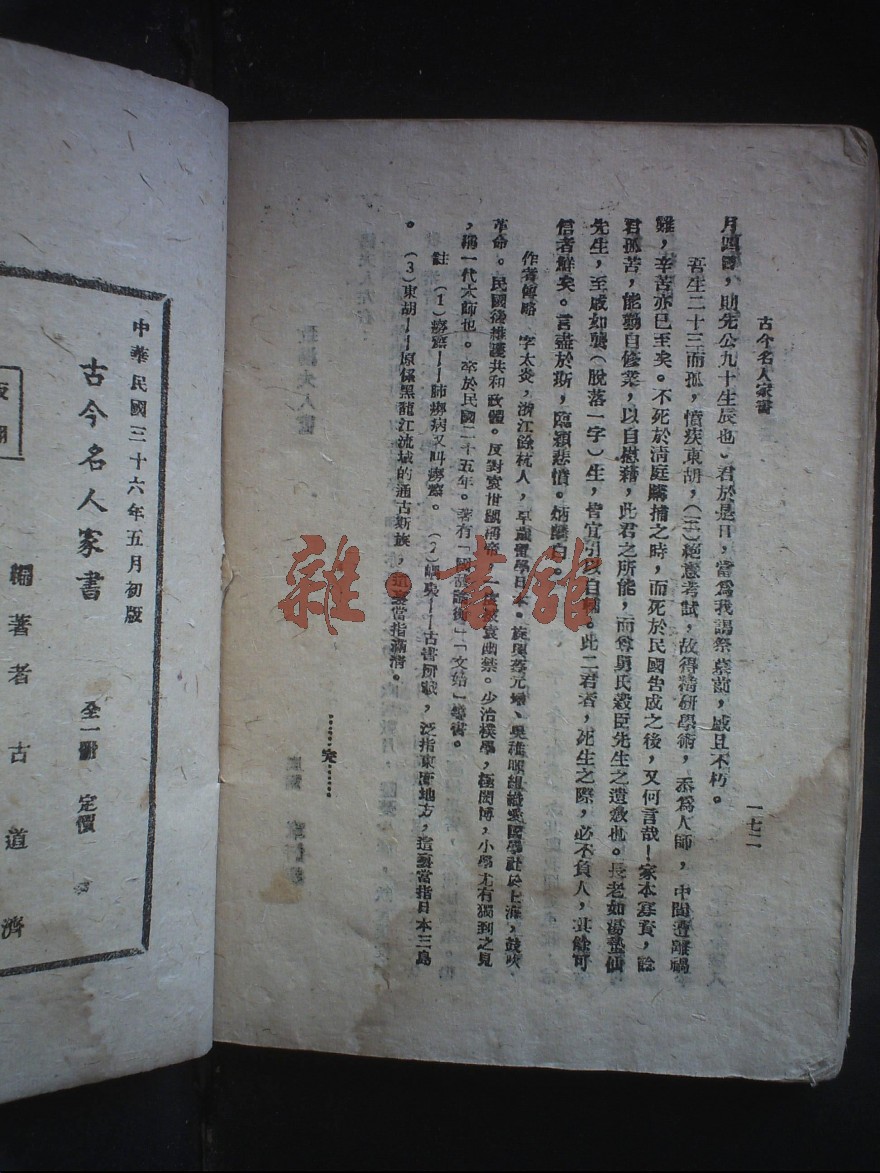 古今名人家書
一七二
月四日，則先公九十生辰也。君於是日，當爲我謁祭墓前，感且不朽。
吾生二十三而孤，憤疾東胡，(三)絕意考試，故得精研學術，忝爲人師，中間遭離禍
難，辛苦亦已至矣。不死於清庭購捕之時，而死於民國告成之後，又何言哉！家本寒素，諗
君孤苦，能勤自修業，以自慰藉，此君之所能，而尊舅氏穀臣先生之遺敎也。長老如湯蟄仙
先生，至戚如龔(脫落一字)生，皆宜引以自輔。此二君者，死生之際，必不負人，其餘可
信者鮮矣。言盡於斯，臨穎悲憤。炳麟白。
作者傳略 字太炎，浙江餘杭人，早歲留學日本。旋與蔡元培、吳稚暉組織愛國學社於上海，鼓吹
革命。民國後維護共和政體。反對袁世凱稱帝，一度被袁幽禁。少治樸學，極閎博，小學尤有獨到之見
，稱一代大師也。卒於民國二十五年。著有「國故論衡」「文始」等書。
註 (1)癆瘵——肺癆病又叫癆瘵。(2)嵎夷——古書所載，泛指東海地方，這裏當指日本三島
。(3)東胡——原係黑龍江流域的通古斯族，這裏當指滿清。
……完……
雜·書館
中華民國三十六年五月初版
古今名人家書
全一冊 定價
編著者 古道濟